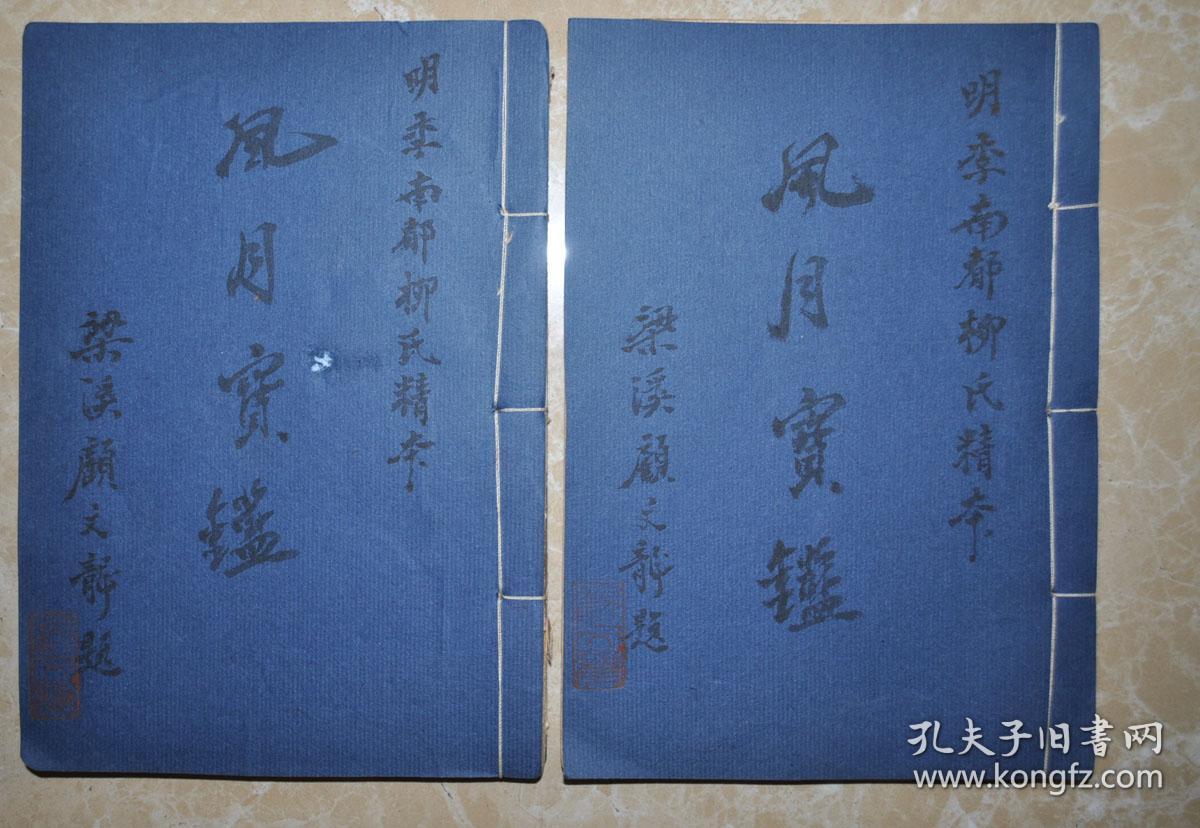 明季南都柳氏精本
風月寶鑑
梁溪顧文
題
明季南都柳氏精本
風月寶鑑
梁溪顧文
題
孔夫子旧書网
www.kongfz.com